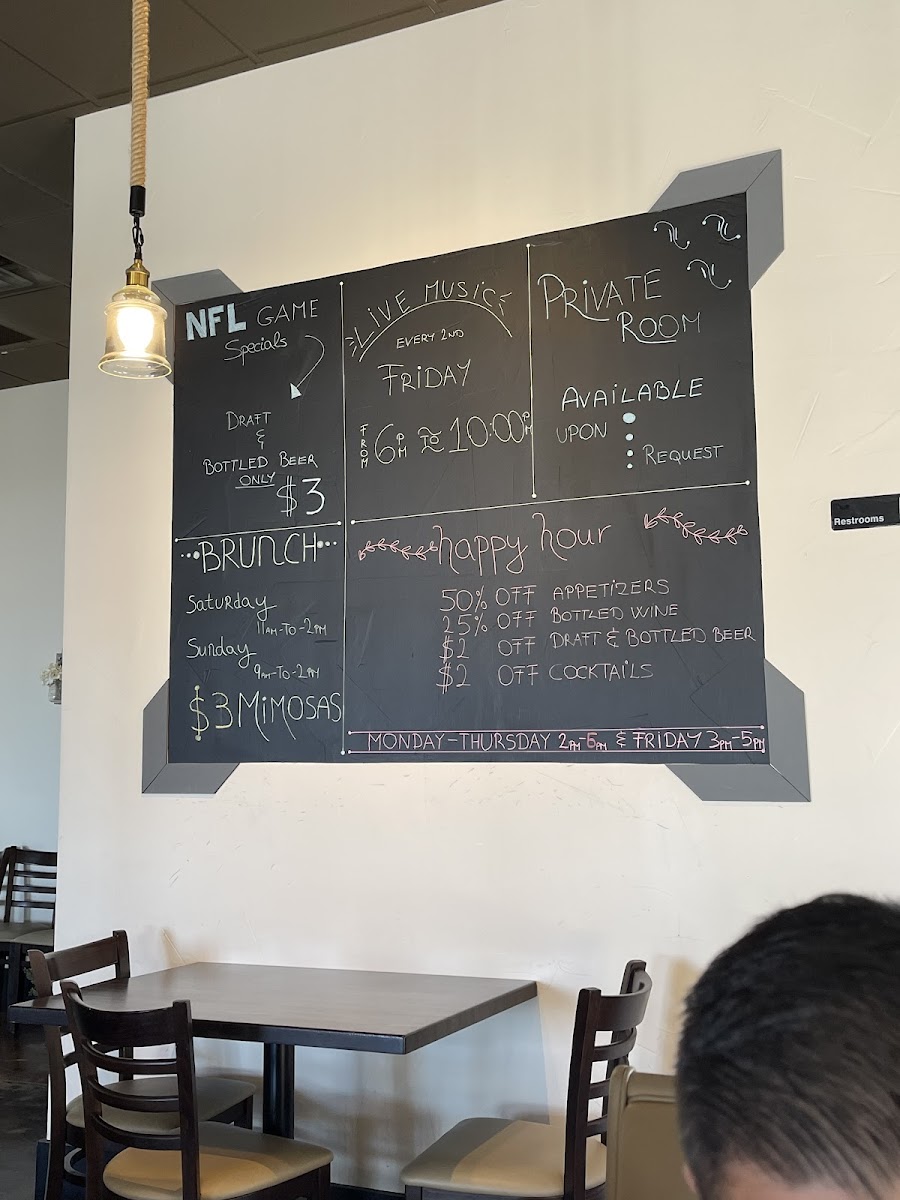 NFL GAME
Specials
DRAFT
&
BOTTLED BEER
ONLY
$3
LIVE MUSIC
EVERY 2ND
FRIDAY
FROM 6PM TO 10:00PM
PRIVATE
ROOM
AVAILABLE
UPON
REQUEST
BRUNCH
Saturday
11AM-TO-2PM
Sunday
9AM-TO-2PM
$3 MIMOSAS
happy hour
50% OFF APPETIZERS
25% OFF BOTTLED WINE
$2 OFF DRAFT & BOTTLED BEER
$2 OFF COCKTAILS
MONDAY-THURSDAY 2PM-6PM & FRIDAY 3PM-5PM
Restrooms